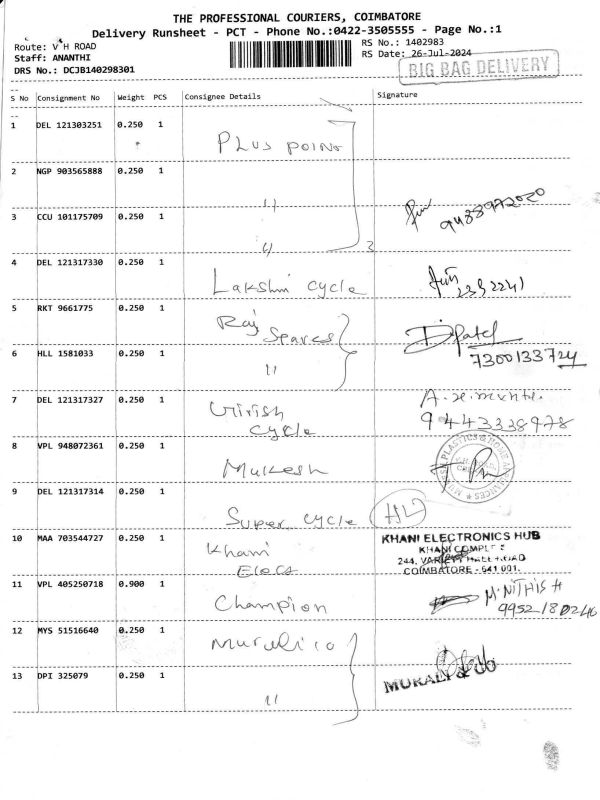 THE PROFESSIONAL COURIERS, COIMBATORE
Delivery Runsheet - PCT - Phone No.:0422-3505555 - Page No.:1
Route: V H ROAD RS No.: 1402983
Staff: ANANTHI RS Date: 26-Jul-2024
DRS No.: DCJB140298301 BIG BAG DELIVERY
S No Consignment No Weight PCS Consignee Details Signature
1 DEL 121303251 0.250 1 Plus Point
2 NGP 903565888 0.250 1 11
3 CCU 101175709 0.250 1 11 3 9488972020
4 DEL 121317330 0.250 1 Lakshmi cycle 2392241
5 RKT 9661775 0.250 1 Raj Spares D.Patel
6 HLL 1581033 0.250 1 11 7300133724
7 DEL 121317327 0.250 1 Girish cycle 9443338978
8 VPL 948072361 0.250 1 Mukesh MUKESH PLASTICS & HOME APPLIANCES
9 DEL 121317314 0.250 1 Super cycle
10 MAA 703544727 0.250 1 Khani Elecs KHANI ELECTRONICS HUB
KHANI COMPLEX
244, VARIETY HALL ROAD
COIMBATORE - 641 001.
11 VPL 405250718 0.900 1 Champion M.NITHISH
9952180246
12 MYS 51516640 0.250 1 Murali co
13 DPI 325079 0.250 1 11 MURALI & CO